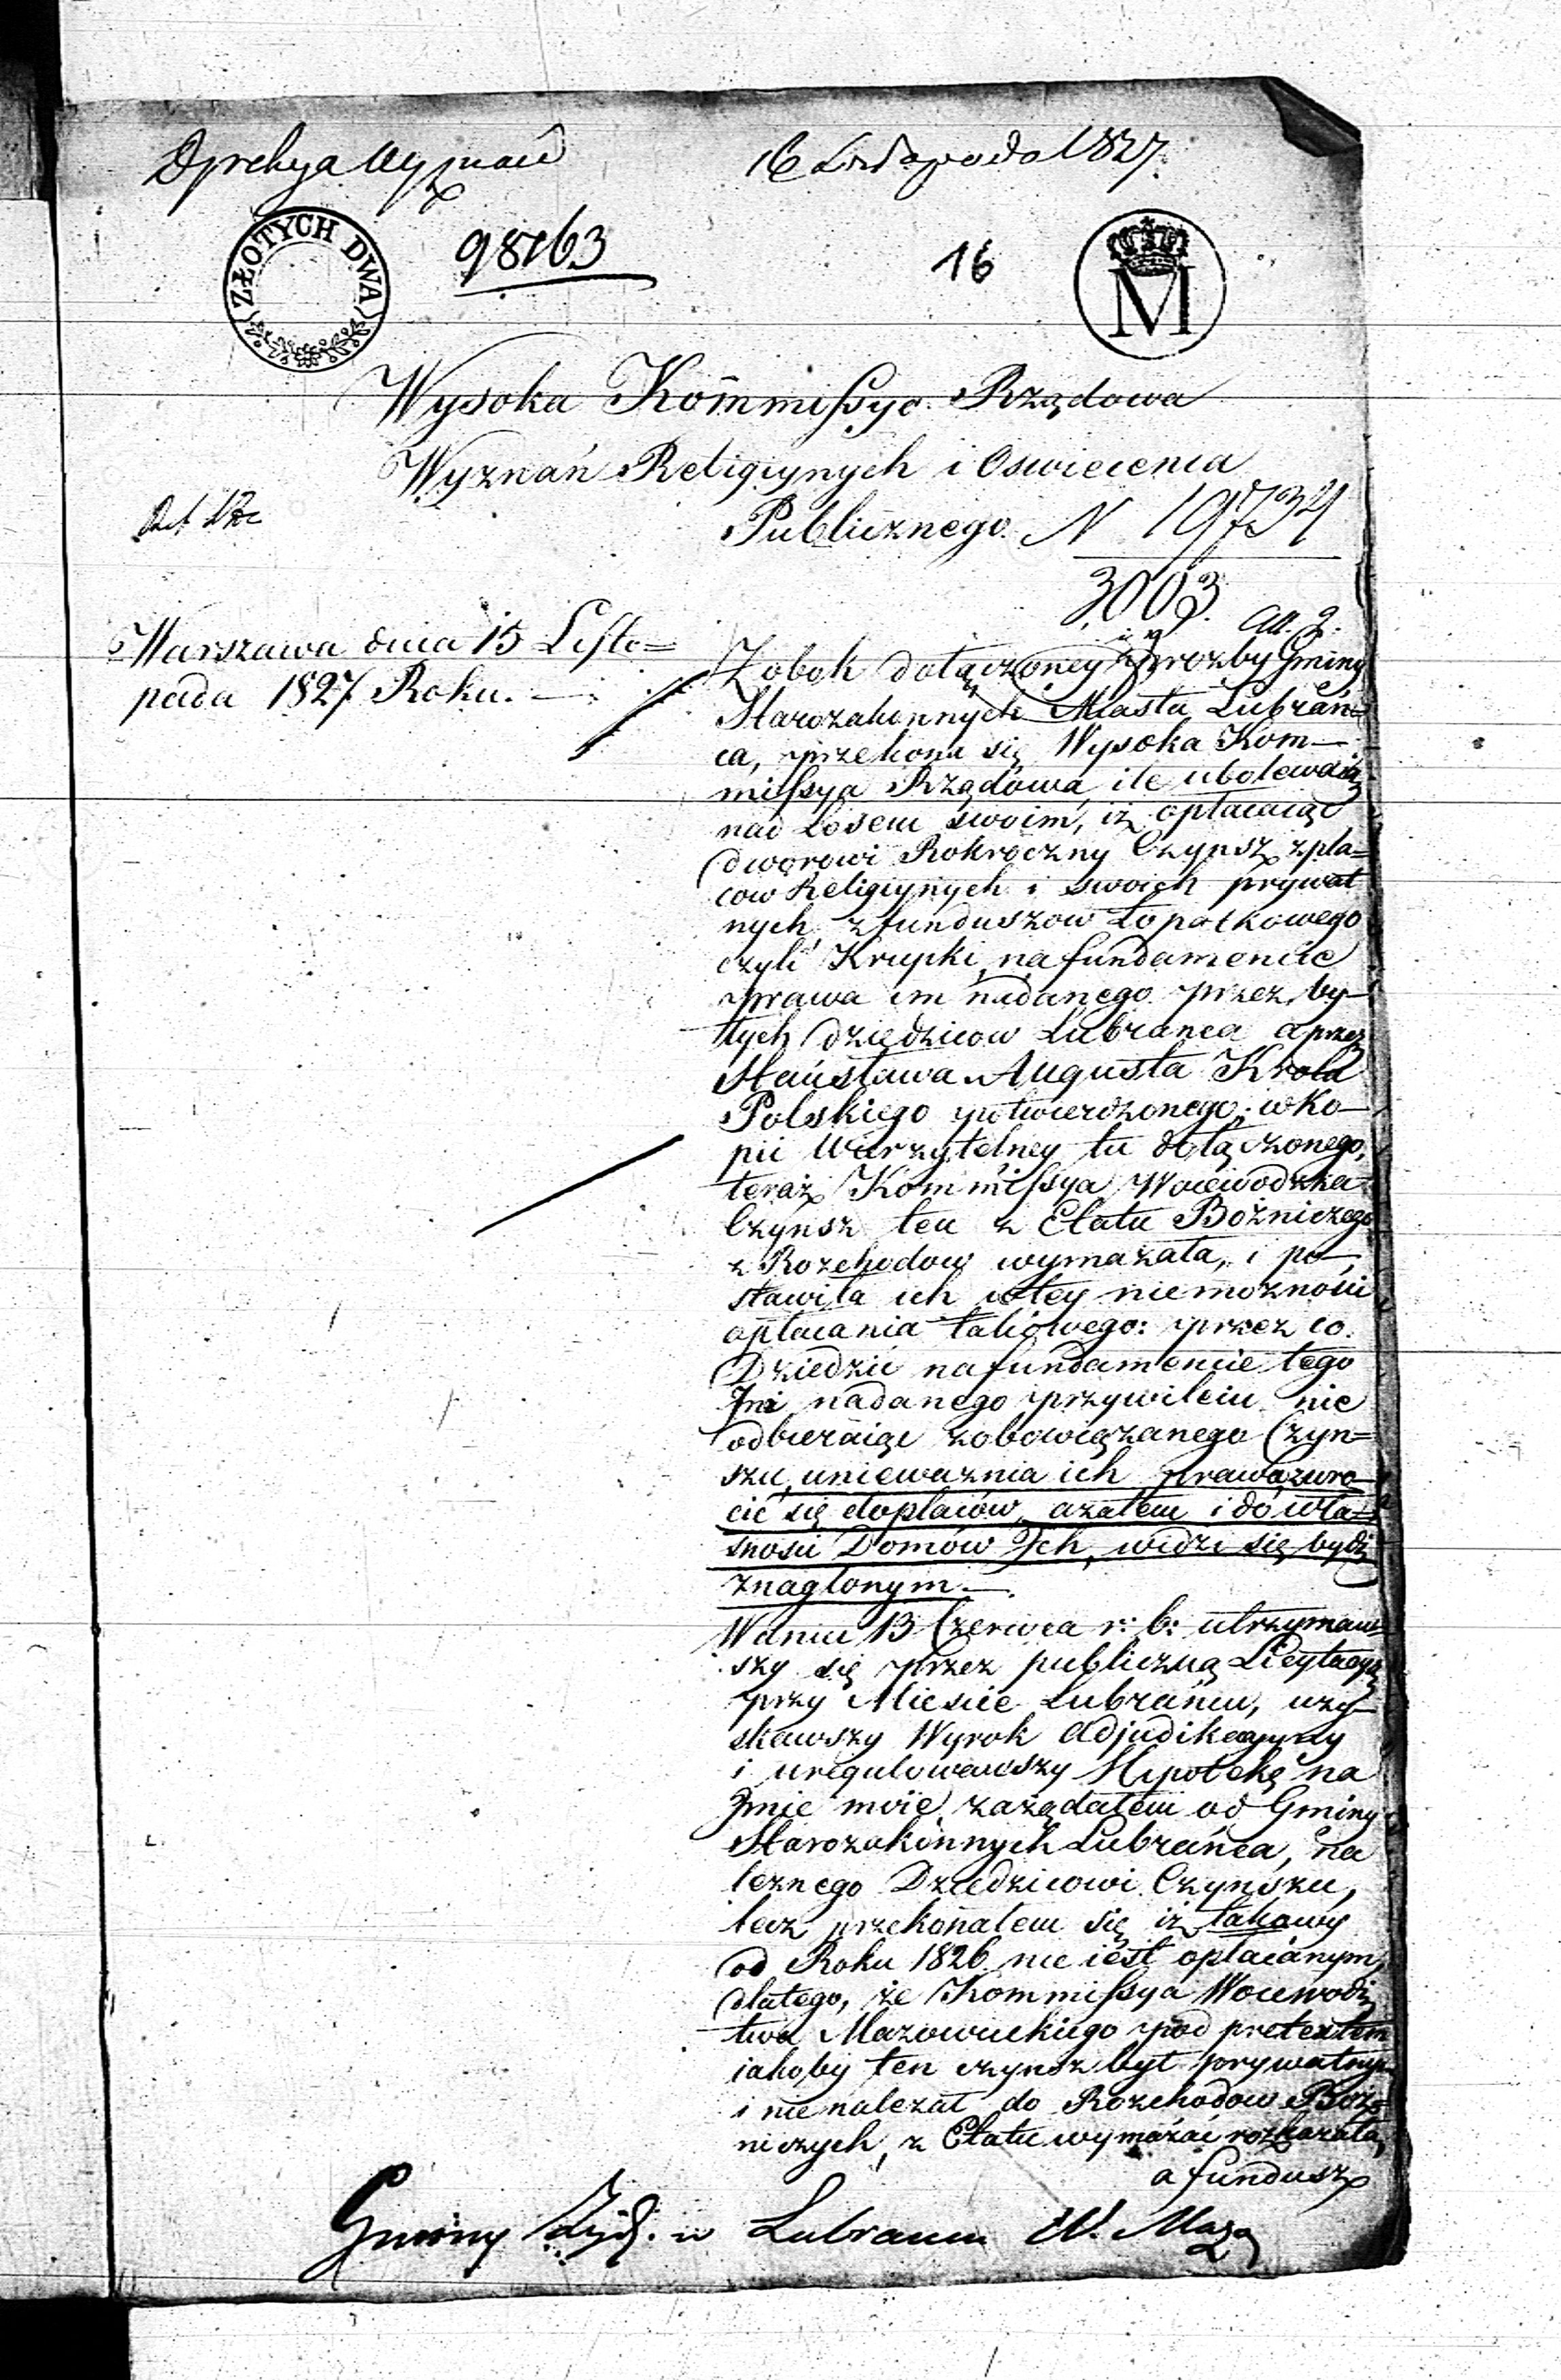 Dyrekcya Wyznań 16 Listopada 1827.
ZŁOTYCH DWA
98163
16
M
Wysoka Kommissyo Rządowa
Wyznań Religiynych i Oswiecenia
Publicznego. N 19734
3003.
Warszawa dnia 15 Listo=
pada 1827 Roku. —
Z obok dołączoney prozby Gminy
Starozakonnych Miasta Lubrań=
ca, przekona się Wysoka Kom—
missya Rządowa ile ubolewaią
nad Losem swoim, iż opłacaiąc
dworowi Rokroczny Czynsz z pla=
cow Religiynych i swoich prywat
nych, z funduszow Łopatkowego
czyli Krupki, na fundamencie
prawa im nadanego przez by—
łych dziedzicow Lubranca a przez
Stanisława Augusta Krola
Polskiego potwierdzonego, w ko—
pii Wierzytelney tu dołączonego,
teraz Kommissya Woiewodzka
Czynsz ten z Etatu Bożniczego
z Rozchodow wymazała, i po—
stawiła ich w tey niemoznosci
opłacania takowego: przez co
Dziedzic na fundamencie tego
Im nadanego przywileiu nie
odbieraiąc zobowiązanego Czyn=
szu, unieważnia ich prawa, zwro—
cić się do placów, a zatem i do wła=
snosci Domów Ich, widzi się bydź
znaglonym. —
W dniu 13 Czerwca r: b: utrzymaw=
szy się przez publiczną Licytacyą
przy Miescie Lubrańcu, uzy—
skawszy Wyrok Adjudikacyyny
i uregulowawszy Hypotekę na
Imie moie, zażądałem od Gminy
Starozakonnych Lubrańca, na
leznego Dziedzicowi Czynszu,
lecz przekonałem się iż takowy
od Roku 1826 nie iest opłacanym,
dlatego, że Kommissya Woiewodz
twa Mazowieckiego pod pretextem
iakoby ten czynsz był prywatnym
i nie nalezał do Rozchodow Boż=
niczych, z Etatu wymazać rozkazała,
a fundusz
Gminy Żyd. w Lubrancu W. Maz